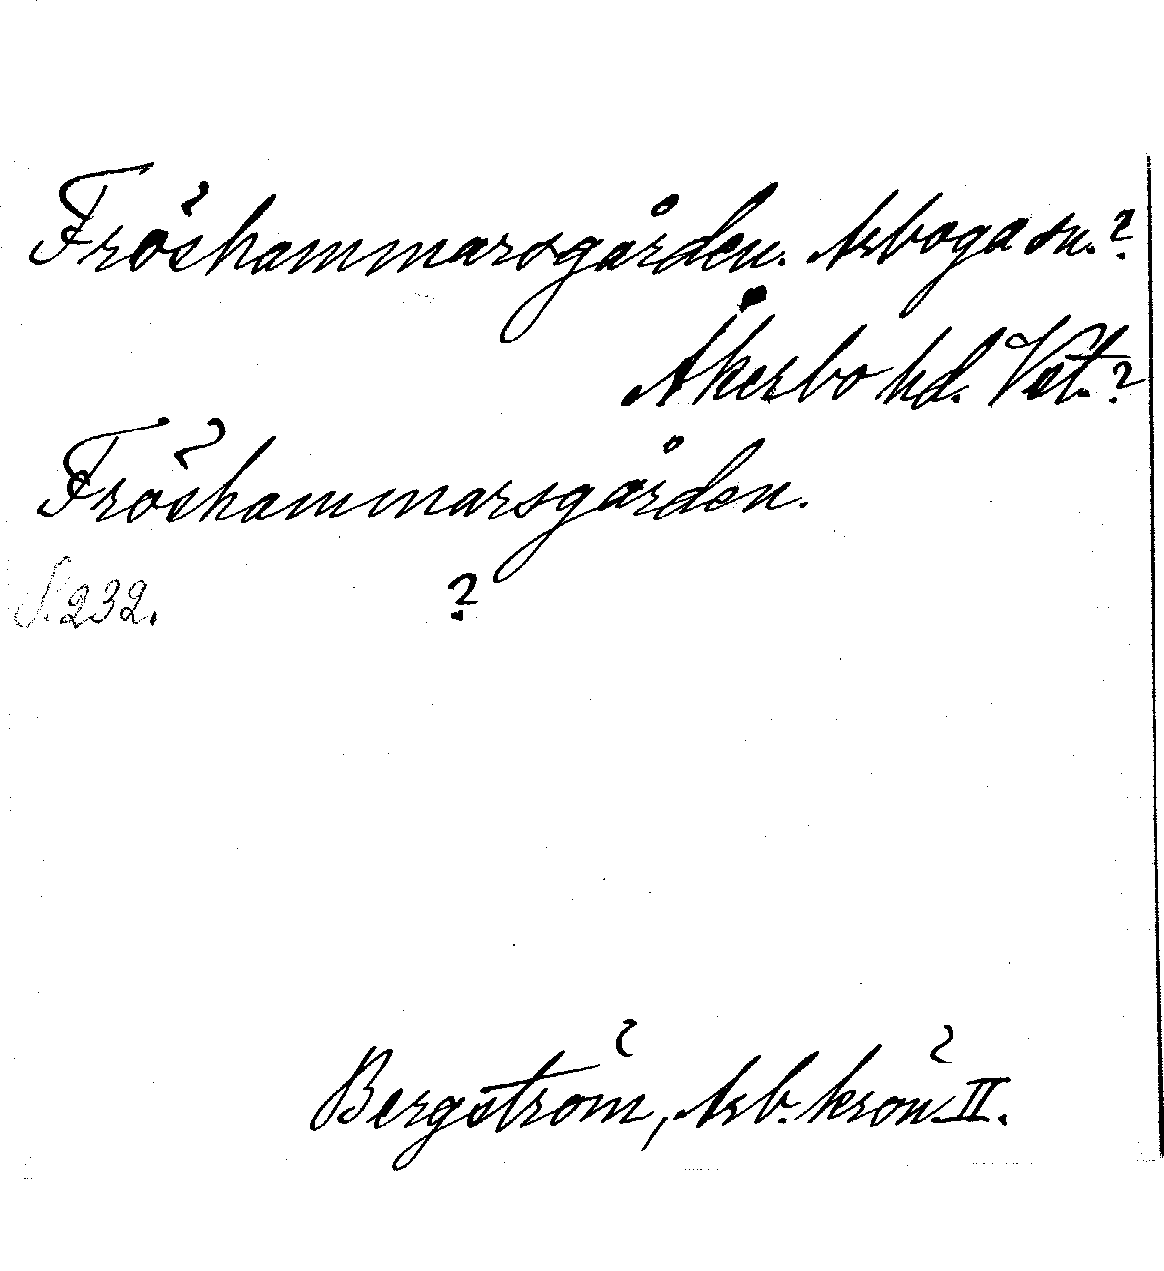 Fröshammarsgården. Arboga sn.?
Åkerbo hd. Vät.?
Fröshammarsgården.
S. 232. ?
Bergström, Arb. krön II.